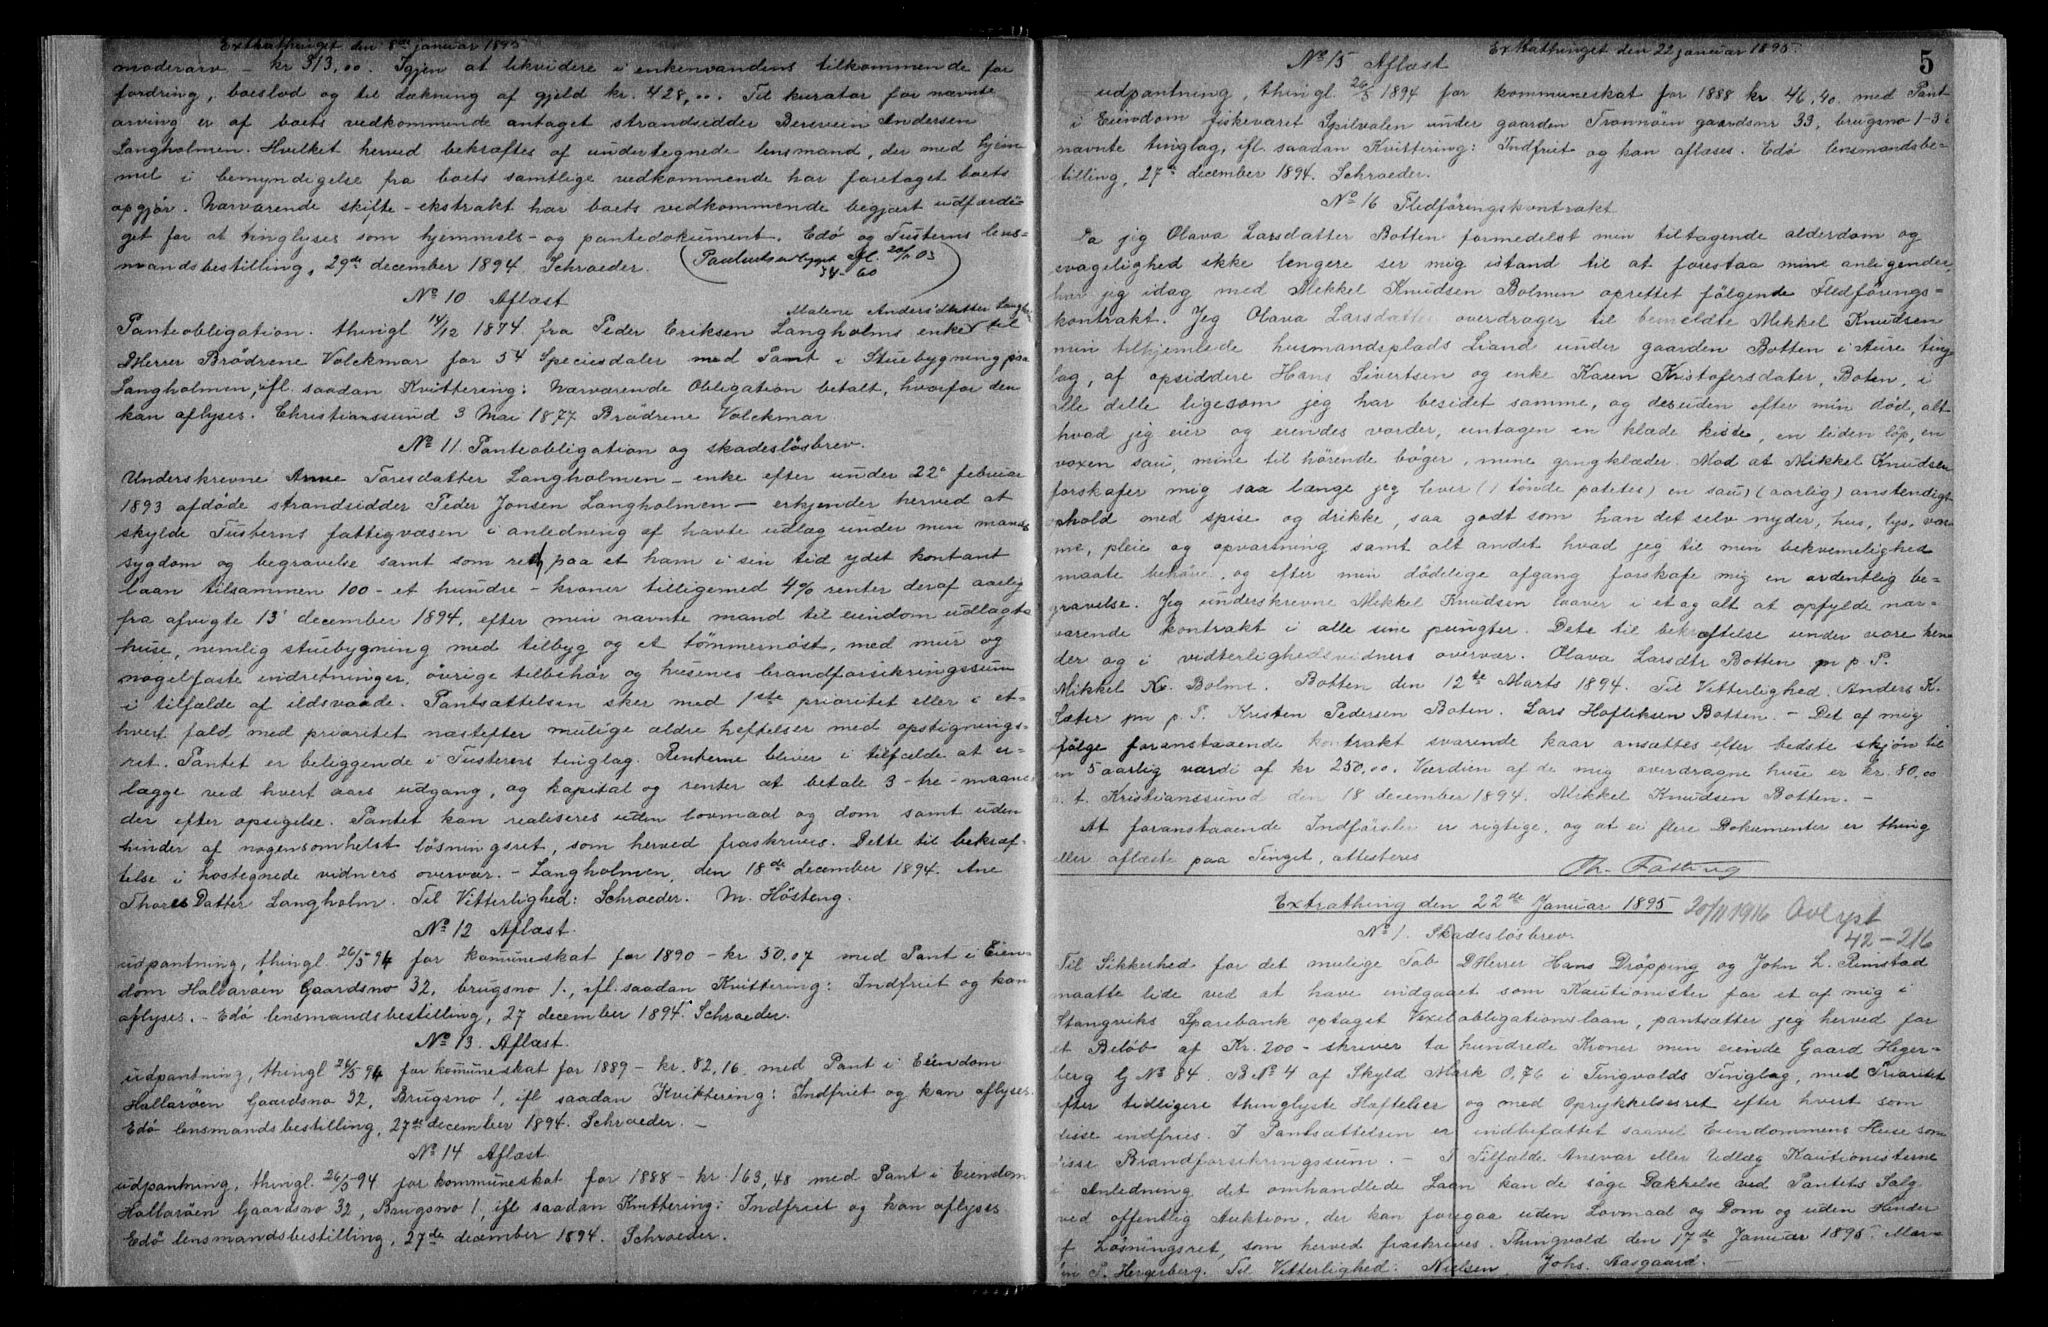 Extrathinget den 8de januar 1895
moderarv – kr 313,00. Igjen at likvidere i enkemandens tilkommende for
fordring, boeslod og til dækning af gjeld kr. 428,00. Til kurator for nævnte
arving er af boets vedkommende antaget strandsidder Bersvein Andersen
Langholmen. Hvilket herved bekræftes af undertegnede lensmand, der med hjem
mel i bemyndigelse fra boets samtlige vedkommende har foretaget boets
opgjør. Nærværende skifte-ekstrakt har boets vedkommende begjært udfærdi-
get for at tinglyses som hjemmels- og pantedokument. Edö og Tusterns lens-
mandsbestilling, 29de december 1894. Schroeder.
No 10 Aflæst
Malene Andersdatter
Panteobligation. thingl 14/12 1874 fra Peder Eriksen Langholms enke til
DHerrer Brödrene Volckmar for 54 Speciesdaler med Pant i Stuebygning paa
Langholmen, ifl. saadan Kvittering: Nærværende Obligation betalt, hvorfor den
kan aflyses. Christianssund 3 Mai 1877 Brödrene Volckmar
No 11. Panteobligation og skadeslösbrev.
Underskrevne Anne Toresdatter Langholmen – enke efter under 22de februar
1893 afdöde strandsidder Peder Jonsen Langholmen – erkjender herved at
skylde Tusterns fattigvæsen i anledning af havte udlæg under min mands
sygdom og begravelse samt som rest paa et ham i sin tid ydet kontant
laan tilsammen 100 – et hundre – kroner tilligemed 4% renter deraf aarlig
fra afvigte 13 december 1894, efter min nævnte mand til eiendom udlagte
huse, nemlig stuebygning med tilbyg og et tömmernöst, med mur og
nagelfaste indretninger, övrige tilbehör og husenes brandforsikringssum
i tilfælde af ildsvaade. Pantsættelsen sker med 1ste prioritet eller i et-
hvert fald med prioritet næstefter mulige ældre heftelser med opstignings-
ret. Pantet er beliggende i Tusterens tinglag. Renterne bliver i tilfælde at er-
lægge ved hvert aars udgang, og kapital og renter at betale 3 – tre – maane
der efter opsigelse. Pantet kan realiseres uden lovmaal og dom samt uden
hinder af nogensomhelst lösningsret, som herved fraskrives. Dette til bekræf-
telse i hostegnede vidners overvær. – Langholmen, den 18de december 1894. Ane
Thores Datter Langholm. Til Vitterlighed: Schroeder. M. Hösteng.
No 12 Aflæst.
udpantning, thingl. 26/5 94 for komuneskat for 1890 – kr. 50,07 med Pant i Eien-
dom Hallaröen Gaardsno 32, brugsno 1., ifl. saadan Kvittering: Indfriet og kan
aflyses. – Edö lensmandsbestilling, 27 december 1894. Schroeder.
No 13. Aflæst.
udpantning, thingl 26/5 94 for komuneskat for 1889 – kr. 82,16. med Pant i Eiendom
Hallaröen Gaardsno 32, Brugsno 1, ifl saadan Kvittering: Indfriet og kan aflyses.
Edö lensmandsbestilling, 27de december 1894. Schroeder. –
No 14 Aflæst.
udpantning, thingl. 26/5 94 for kommuneskat for 1888 – kr. 163,48 med Pant i Eiendom
Hallaröen Gaardsno 32, Brugsno 1, ifl saadan Kvittering: Indfriet og kan aflyses
Edö lensmandsbestilling, 27de december 1894. Schroeder.
Extrathinget den 22 januar 1895.
5
No 15 Aflæst
udpantning, thingl 26/5 1894 for kommuneskat for 1888 kr 46,40. med Pant
i Eiendom fiskeværet Spilvalen under gaarden Tromnöen gaardsnr 33, brugsno 1-3 i
nævnte tinglag, ifl. saadan Kvittering: Indfriet og kan aflæses. Edö lensmandsbe-
tilling, 27de december 1894. Schroeder.
No 16 Fledföringskontrakt
Da jeg Olava Larsdatter Botten formedelst min tiltagende alderdom og
svagelighed ikke længere ser mig istand til at forestaa mine anligender,
har jeg idag med Mikkel Knudsen Bolmen oprettet fölgende Fledförings-
kontrakt. Jeg Olava Larsdatter overdrager til bemeldte Mikkel Knudsen
min tilhjemlede husmandsplads Liand under gaarden Botten i Aure ting
lag, af opsiddere Hans Sivertsen og enke Karen Kristofersdater, Boten, i
alle delle ligesom jeg har besidet samme, og desuden efter min död, alt
hvad jeg eier og eiendes vorder, untagen en klæde kiste, en liden löp, en
voxen sau, mine til hörende böger, mine gangklæder. Mod at Mikkel Knudsen
forskafer mig saa længe jeg lever (1 tönde patetes) en sau) (aarlig) anstendigt
ophold med spise og drikke, saa godt som han det selv nyder, hus, lys, var
me, pleie og opvartning samt alt andet hvad jeg til min bekvemelighed
maate behöve, og efter min dödelige afgang forskafe mig en ordentlig be-
gravelse. Jeg underskrevne Mikkel Knudsen lover i et og alt at opfylde nær-
værende kontrakt i alle sine pungter. Dete til bekræftelse under vore hæn
der og i vidterlighedsvidners overvær. Olava Larsdtr Botten m p. P.
Mikkel Kn. Bolme. Botten den 12te Marts 1894. Til Vitterlighed. Anders K.
Sæter m p. P. Kristen Pedersen Boten. Lars Hafliksen Botten. – Det af mig
fölge foranstaaende kontrakt svarende kaar ansættes efter bedste skjön til
en 5 aarlig værdi af kr 250,00. Værdien af de mig overdragne huse er kr. 80,00
p. t. Kristianssund den 18 december 1894. Mikkel Knudsen Botten. –
At foranstaaende Indförsler er rigtige, og at ei flere Dokumenter er thing
eller aflæste paa Tinget, attesteres
Th. Fatting
Extrathing den 22de Januar 1895 20/11 1916 Avlyst
No 1. Skadeslösbrev. 42 – 216
Til Sikkerhed for det mulige Tab DHerrer Hans Dröpping og John L. Rimstad
maatte lide ved at have indgaaet som Kautionister for et af mig i
Stangviks Sparebank optaget Vexelobligationslaan, pantsætter jeg herved for
et Belöb af Kr. 200 – skriver to hundrede Kroner min eiende Gaard Heger-
berg G No 84. B No 4 af Skyld Mark 0,76 i Tingvolds Tinglag, med Prioritet
efter tidligere thinglyste Hæftelser og med Oprykkelsesret efter hvert som
disse indfries. I Pantsættelsen er indbefattet saavel Eiendommens Huse som
disse Brandforsikringssum. – I Tilfælde Ansvar eller Udlæg Kautionisterne
i Anledning det omhandlede Laan kan de söge Dækkelse ved Pantets Salg
ved offentlig Auktion, der kan foregaa uden Lovmaal og Dom og uden Hinder
af Lösningsret, som herved fraskrives. Thingvold den 17de Januar 1895. Mar-
tin P. Hegerberg. Til Vitterlighed: Nielsen. Johs. Aasgaard. –